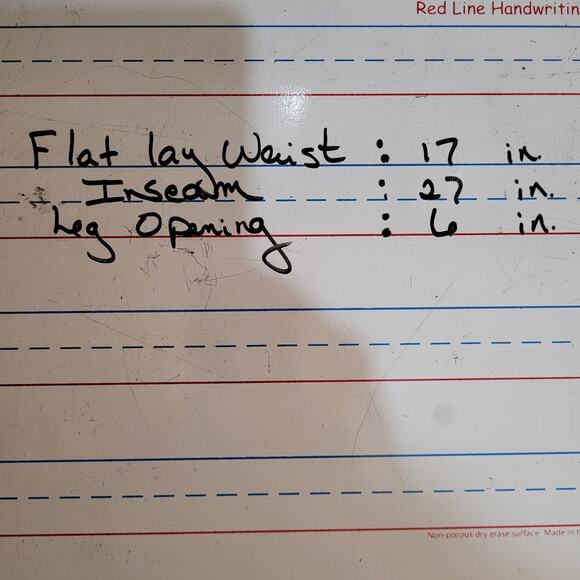 Red Line Handwritin
Flat lay Waist : 17 in.
Inseam : 27 in.
Leg Opening : 6 in.
Non-porous dry erase surface Made in